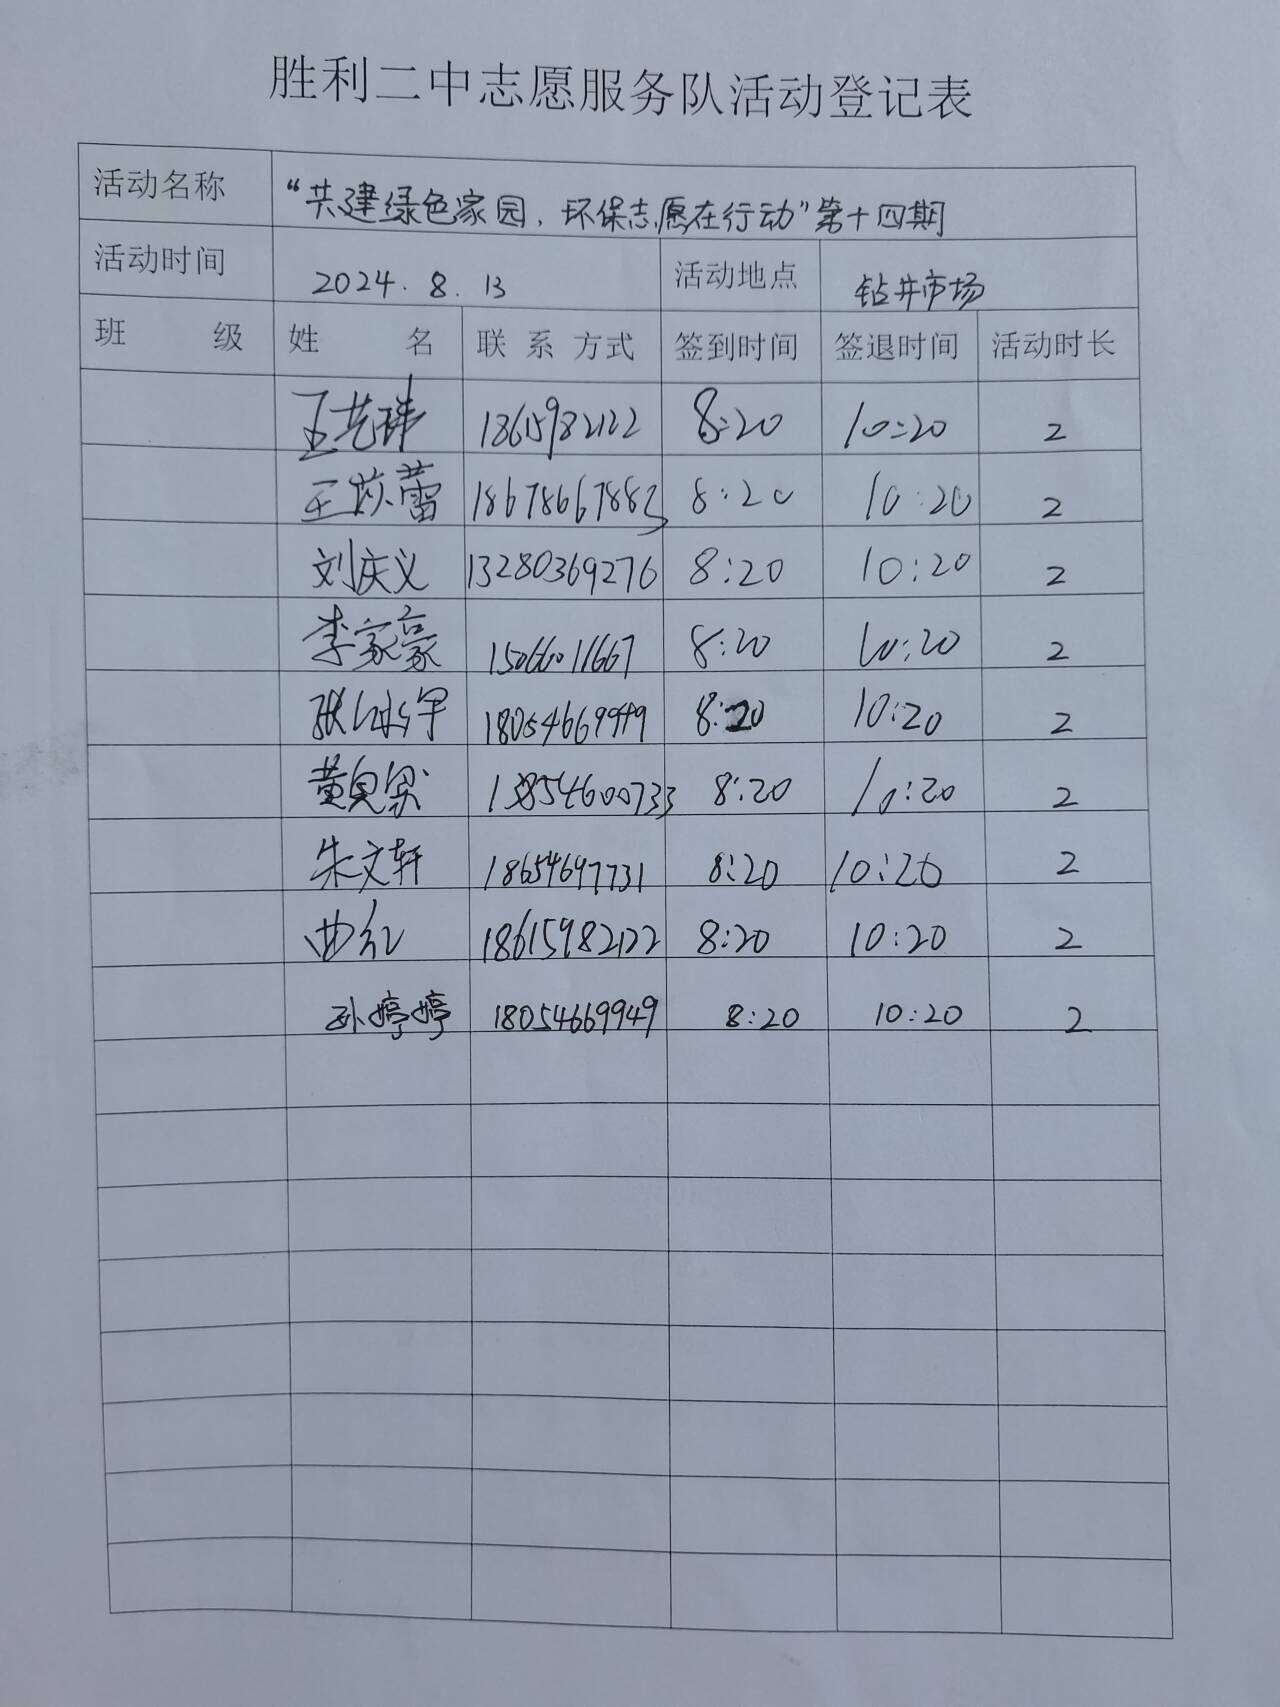 胜利二中志愿服务队活动登记表
活动名称 “共建绿色家园、环保志愿在行动”第十四期
活动时间 2024.8.13 活动地点 钻井市场
班 级 姓 名 联系方式 签到时间 签退时间 活动时长
王艺玮 18615982122 8:20 10:20 2
王 蕾 18678667883 8:20 10:20 2
刘庆义 13280369276 8:20 10:20 2
李家豪 15066011667 8:20 10:20 2
张 宇 18054669949 8:20 10:20 2
黄 13854600733 8:20 10:20 2
朱文轩 18654697731 8:20 10:20 2
曲红 18615982122 8:20 10:20 2
孙婷婷 18054669949 8:20 10:20 2